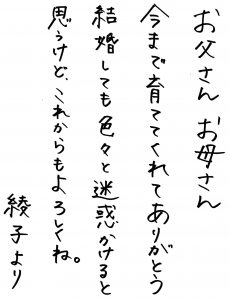 お父さん お母さん
今まで育ててくれてありがとう
結婚しても色々と迷惑かけると
思うけど、これからもよろしくね。
綾子より